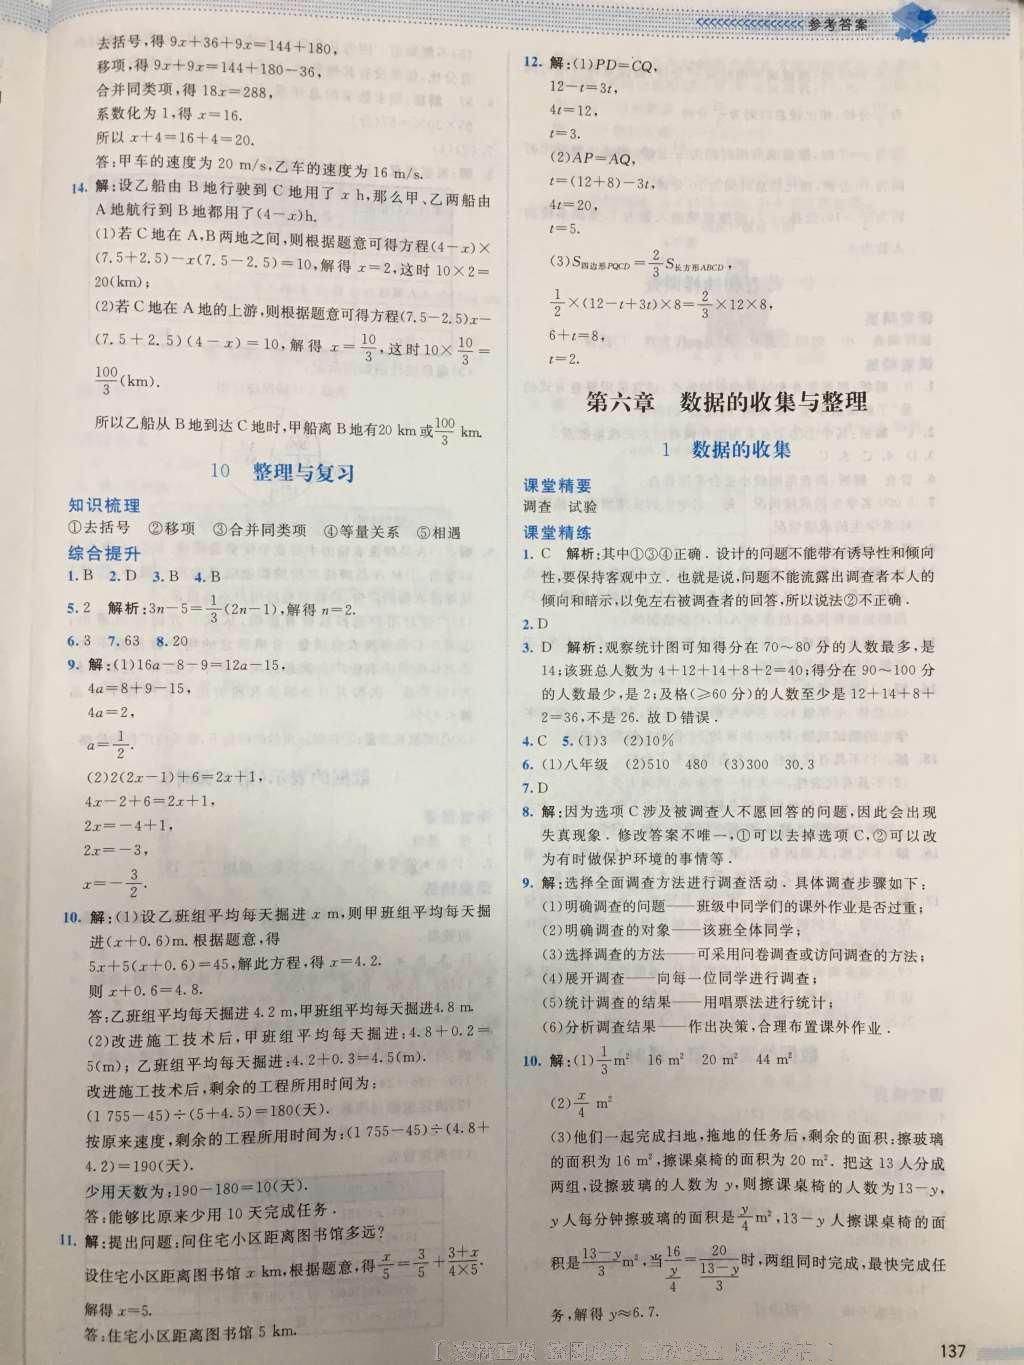 参考答案
去括号,得 9x+36+9x=144+180,
移项,得 9x+9x=144+180-36,
合并同类项,得 18x=288,
系数化为 1,得 x=16.
所以 x+4=16+4=20.
答:甲车的速度为 20 m/s,乙车的速度为 16 m/s.
14. 解:设乙船由 B 地行驶到 C 地用了 x h,那么甲、乙两船由
A 地航行到 B 地都用了(4-x)h.
(1)若 C 地在 A,B 两地之间,则根据题意可得方程(4-x)×
(7.5+2.5)-x(7.5-2.5)=10,解得 x=2,这时 10×2=
20(km);
(2)若 C 地在 A 地的上游,则根据题意可得方程(7.5-2.5)x-
(7.5+2.5)(4-x)=10,解得 x=10/3,这时10×10/3=
100/3(km).
所以乙船从 B 地到达 C 地时,甲船离 B 地有20 km或100/3 km.
10 整理与复习
知识梳理
①去括号 ②移项 ③合并同类项 ④等量关系 ⑤相遇
综合提升
1. B 2. D 3. B 4. B
5. 2 解析:3n-5=1/3(2n-1),解得 n=2.
6. 3 7. 63 8. 20
9. 解:(1)16a-8-9=12a-15,
4a=8+9-15,
4a=2,
a=1/2.
(2)2(2x-1)+6=2x+1,
4x-2+6=2x+1,
2x=-4+1,
2x=-3,
x=-3/2.
10. 解:(1)设乙班组平均每天掘进 x m,则甲班组平均每天掘
进(x+0.6)m.根据题意,得
5x+5(x+0.6)=45,解此方程,得 x=4.2.
则 x+0.6=4.8.
答:乙班组平均每天掘进 4.2 m,甲班组平均每天掘进4.8 m.
(2)改进施工技术后,甲班组平均每天掘进:4.8+0.2=
5(m);乙班组平均每天掘进:4.2+0.3=4.5(m).
改进施工技术后,剩余的工程所用时间为:
(1 755-45)÷(5+4.5)=180(天).
按原来速度,剩余的工程所用时间为:(1 755-45)÷(4.8+
4.2)=190(天).
少用天数为:190-180=10(天).
答:能够比原来少用 10 天完成任务.
11. 解:提出问题:问住宅小区距离图书馆多远?
设住宅小区距离图书馆 x km,根据题意,得x/5=3/5+(3+x)/(4×5).
解得 x=5.
答:住宅小区距离图书馆 5 km.
12. 解:(1)PD=CQ,
12-t=3t,
4t=12,
t=3.
(2)AP=AQ,
t=(12+8)-3t,
4t=20,
t=5.
(3)S四边形PQCD=2/3 S长方形ABCD,
1/2×(12-t+3t)×8=2/3×12×8,
6+t=8,
t=2.
第六章 数据的收集与整理
1 数据的收集
课堂精要
调查 试验
课堂精练
1. C 解析:其中①③④正确.设计的问题不能带有诱导性和倾向
性,要保持客观中立.也就是说,问题不能流露出调查者本人的
倾向和暗示,以免左右被调查者的回答,所以说法②不正确.
2. D
3. D 解析:观察统计图可知得分在 70～80 分的人数最多,是
14;该班总人数为 4+12+14+8+2=40;得分在 90～100 分
的人数最少,是 2;及格(≥60 分)的人数至少是 12+14+8+
2=36,不是 26.故 D 错误.
4. C 5. (1)3 (2)10%
6. (1)八年级 (2)510 480 (3)300 30.3
7. D
8. 解:因为选项 C 涉及被调查人不愿回答的问题,因此会出现
失真现象.修改答案不唯一,①可以去掉选项 C,②可以改
为有时做保护环境的事情等.
9. 解:选择全面调查方法进行调查活动.具体调查步骤如下:
(1)明确调查的问题——班级中同学们的课外作业是否过重;
(2)明确调查的对象——该班全体同学;
(3)选择调查的方法——可采用问卷调查或访问调查的方法;
(4)展开调查——向每一位同学进行调查;
(5)统计调查的结果——用唱票法进行统计;
(6)分析调查结果——作出决策,合理布置课外作业.
10. 解:(1)1/3 m² 16 m² 20 m² 44 m²
(2)x/4 m²
(3)他们一起完成扫地,拖地的任务后,剩余的面积:擦玻璃
的面积为 16 m²,擦课桌椅的面积为 20 m².把这 13 人分成
两组,设擦玻璃的人数为 y,则擦课桌椅的人数为13-y,
y 人每分钟擦玻璃的面积是y/4 m²,13-y 人擦课桌椅的面
积是(13-y)/3 m²,当16/(y/4)=20/((13-y)/3)时,两组同时完成,最快完成任
务,解得 y≈6.7.
137